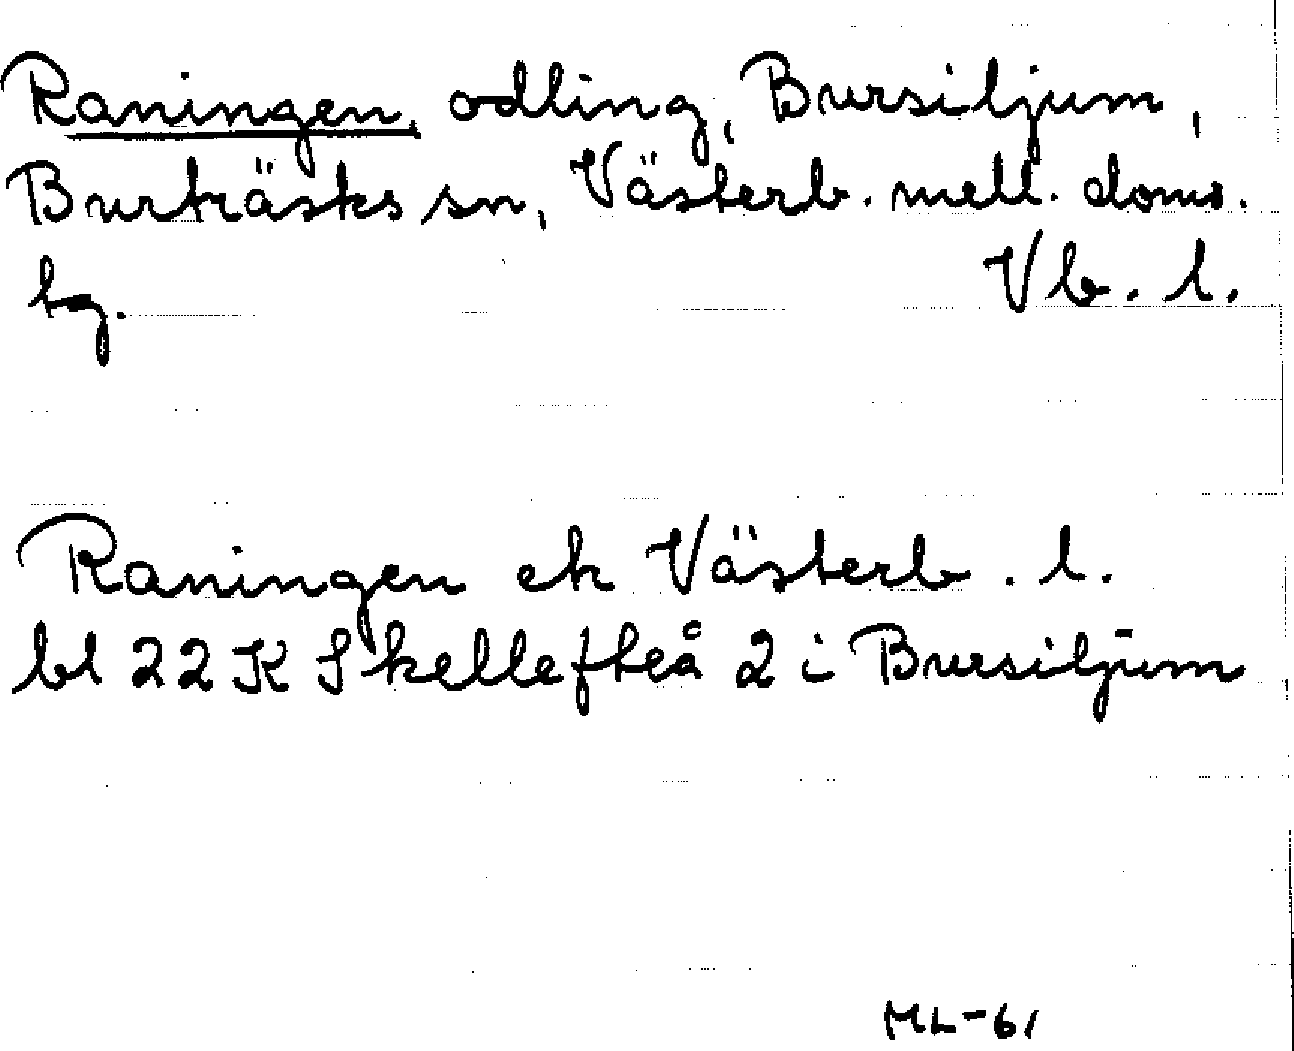 Raningen, odling, Bursiljum,
Burträsks sn, Västerb. mell. doms.
tg. Vb. l.
Raningen ek Västerb. l.
bl 22 K Skellefteå 2 i Bursiljum
ML-61